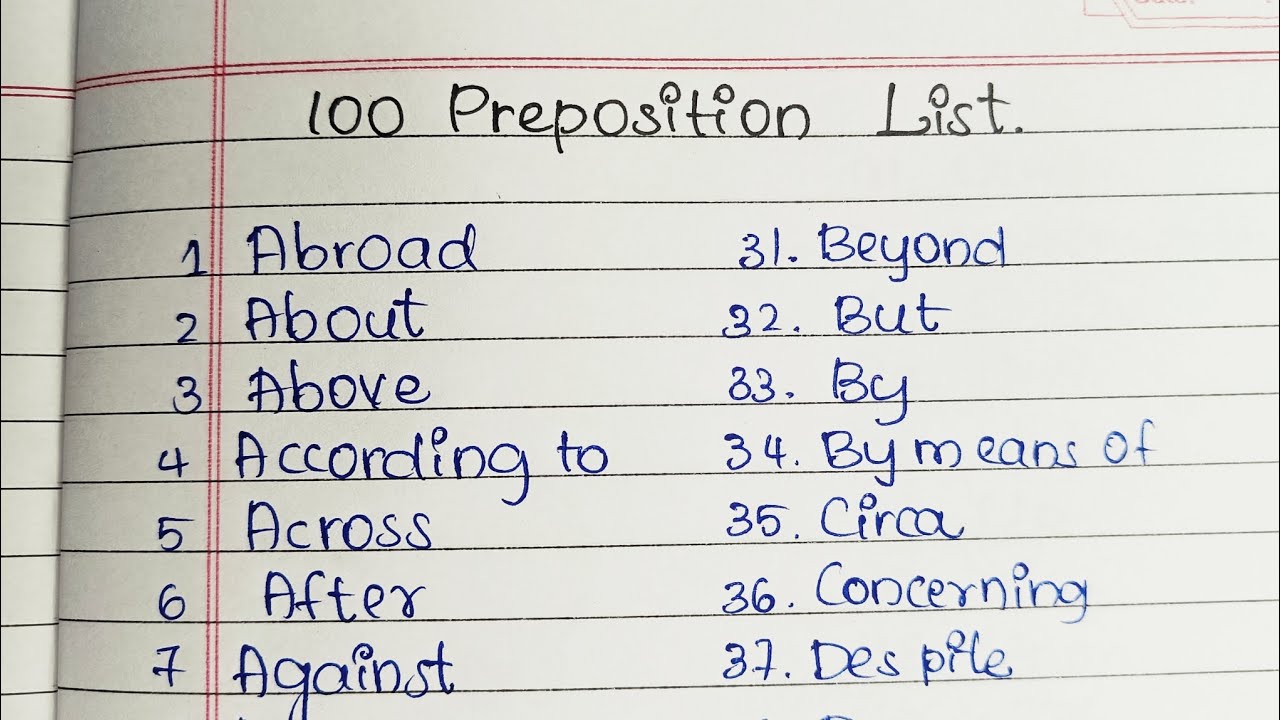 100 Preposition List.
1 Abroad
2 About
3 Above
4 According to
5 Across
6 After
7 Against
31. Beyond
32. But
33. By
34. By means of
35. Circa
36. Concerning
37. Des pite